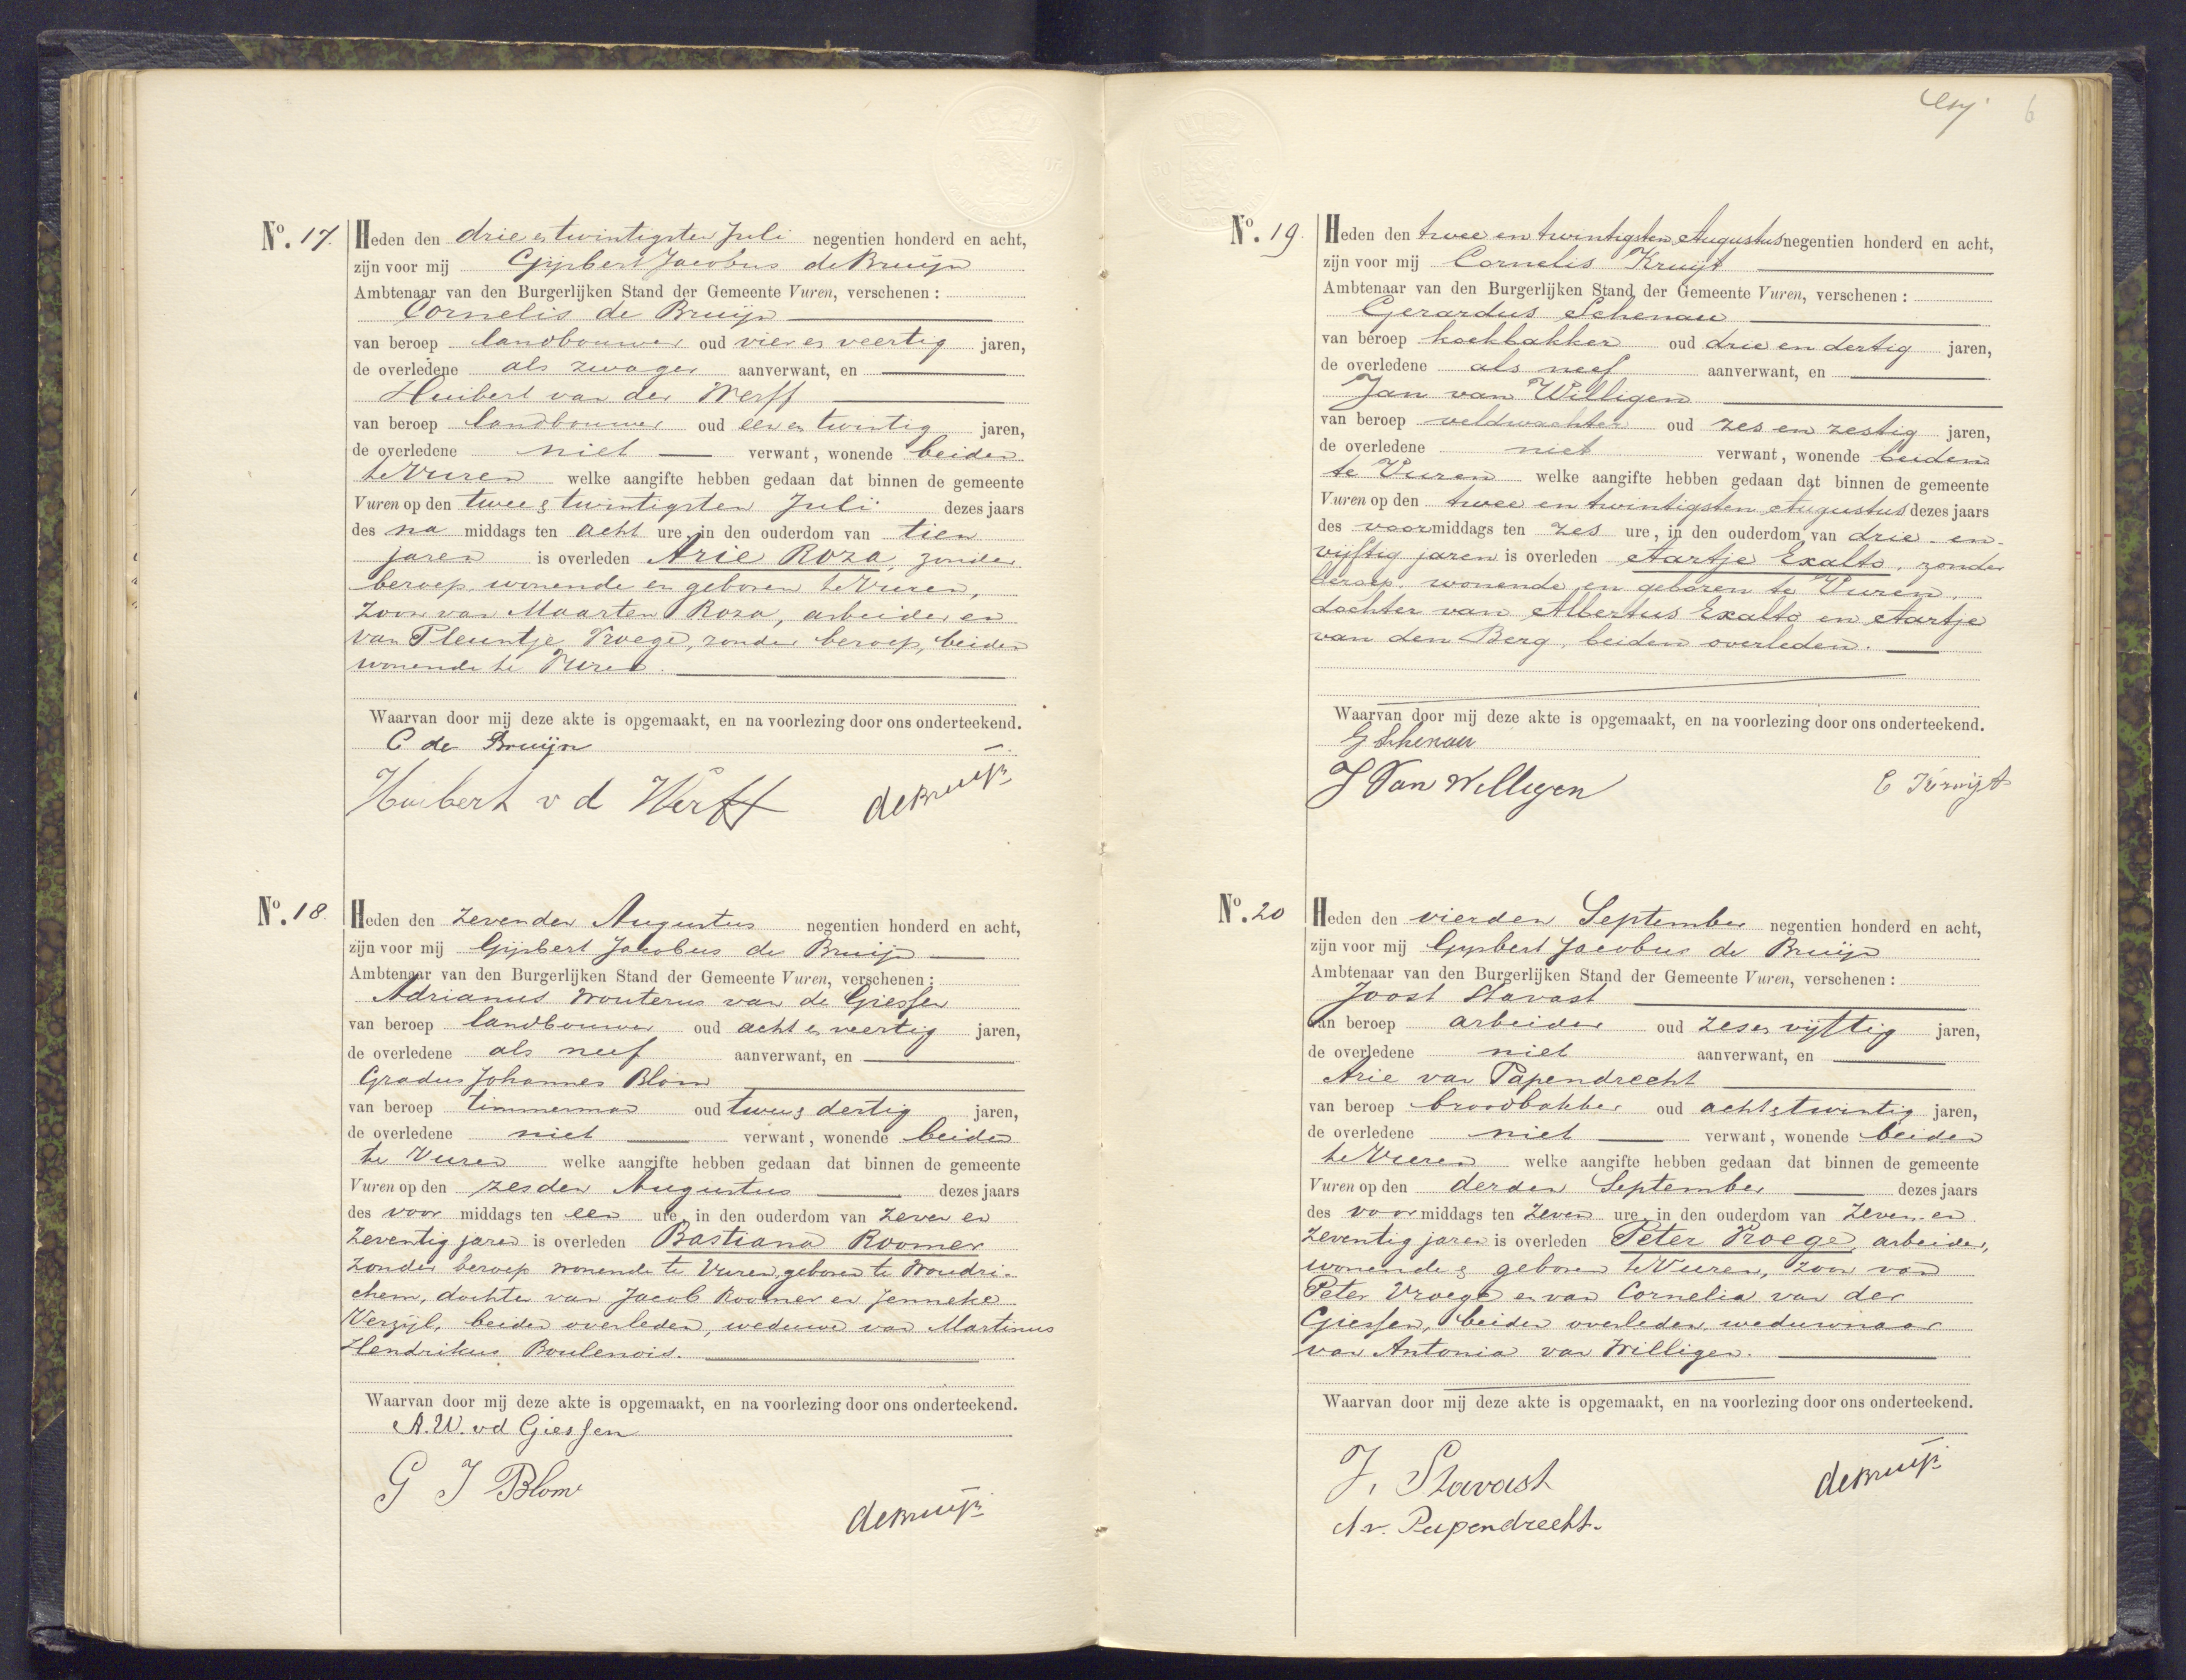 No. 17. Heden den drie & twintigsten Juli negentien honderd en acht,
zijn voor mij Gijsbert Jacobus de Bruijn
Ambtenaar van den Burgerlijken Stand der Gemeente Vuren, verschenen:
Cornelis de Bruijn
van beroep landbouwer oud vier en veertig jaren,
de overledene als zwager aanverwant, en
Huibert van der Werff
van beroep landbouwer oud een en twintig jaren,
de overledene niet verwant, wonende beiden
te Vuren welke aangifte hebben gedaan dat binnen de gemeente
Vuren op den twee & twintigsten Juli dezes jaars
des na middags ten acht ure, in den ouderdom van tien
jaren is overleden Arie Roza, zonder
beroep, wonende en geboren te Vuren,
zoon van Maarten Roza, arbeider en
van Pleuntje Vroege, zonder beroep, beiden
wonende te Vuren.
Waarvan door mij deze akte is opgemaakt, en na voorlezing door ons onderteekend.
C de Bruijn
Huibert v d Werff deBruijn
No. 18. Heden den zevenden Augustus negentien honderd en acht,
zijn voor mij Gijsbert Jacobus de Bruijn
Ambtenaar van den Burgerlijken Stand der Gemeente Vuren, verschenen:
Adrianus Wouterus van de Giessen
van beroep landbouwer oud acht en veertig jaren,
de overledene als neef aanverwant, en
Gradus Johannes Blom
van beroep timmerman oud twee & dertig jaren,
de overledene niet verwant, wonende beiden
te Vuren welke aangifte hebben gedaan dat binnen de gemeente
Vuren op den zesden Augustus dezes jaars
des voor middags ten een ure, in den ouderdom van zeven en
zeventig jaren is overleden Bastiana Roomer
zonder beroep wonende te Vuren, geboren te Woudri-
chem, dochter van Jacob Roomer en Jenneke
Verzijl, beiden overleden, weduwe van Martinus
Hendrikus Boulenois.
Waarvan door mij deze akte is opgemaakt, en na voorlezing door ons onderteekend.
A. W. vd Giessen
G J Blom
deBruijn
6
No. 19. Heden den twee en twintigsten Augustus negentien honderd en acht,
zijn voor mij Cornelis Kruijt
Ambtenaar van den Burgerlijken Stand der Gemeente Vuren, verschenen:
Gerardus Schenau
van beroep koekbakker oud drie en dertig jaren,
de overledene als neef aanverwant, en
Jan van Willigen
van beroep veldwachter oud zes en zestig jaren,
de overledene niet verwant, wonende beiden
te Vuren welke aangifte hebben gedaan dat binnen de gemeente
Vuren op den twee en twintigsten Augustus dezes jaars
des voormiddags ten zes ure, in den ouderdom van drie en
vijftig jaren is overleden Aartje Exalto, zonder
beroep, wonende en geboren te Vuren,
dochter van Albertus Exalto en Aartje
van den Berg, beiden overleden.
Waarvan door mij deze akte is opgemaakt, en na voorlezing door ons onderteekend.
G Schenau
J Van Willigen C Kruijt
No. 20 Heden den vierden September negentien honderd en acht,
zijn voor mij Gijsbert Jacobus de Bruijn
Ambtenaar van den Burgerlijken Stand der Gemeente Vuren, verschenen:
Joost Stavast
van beroep arbeider oud zes en vijftig jaren,
de overledene niet aanverwant, en
Arie van Papendrecht
van beroep broodbakker oud acht & twintig jaren,
de overledene niet verwant, wonende beiden
te Vuren welke aangifte hebben gedaan dat binnen de gemeente
Vuren op den derden September dezes jaars
des voor middags ten zeven ure, in den ouderdom van zeven en
zeventig jaren is overleden Peter Vroege, arbeider,
wonende & geboren te Vuren, zoon van
Peter Vroege en van Cornelia van der
Giessen, beiden overleden, weduwnaar
van Antonia van Willigen.
Waarvan door mij deze akte is opgemaakt, en na voorlezing door ons onderteekend.
J. Stavast deBruijn
A v. Papendrecht.